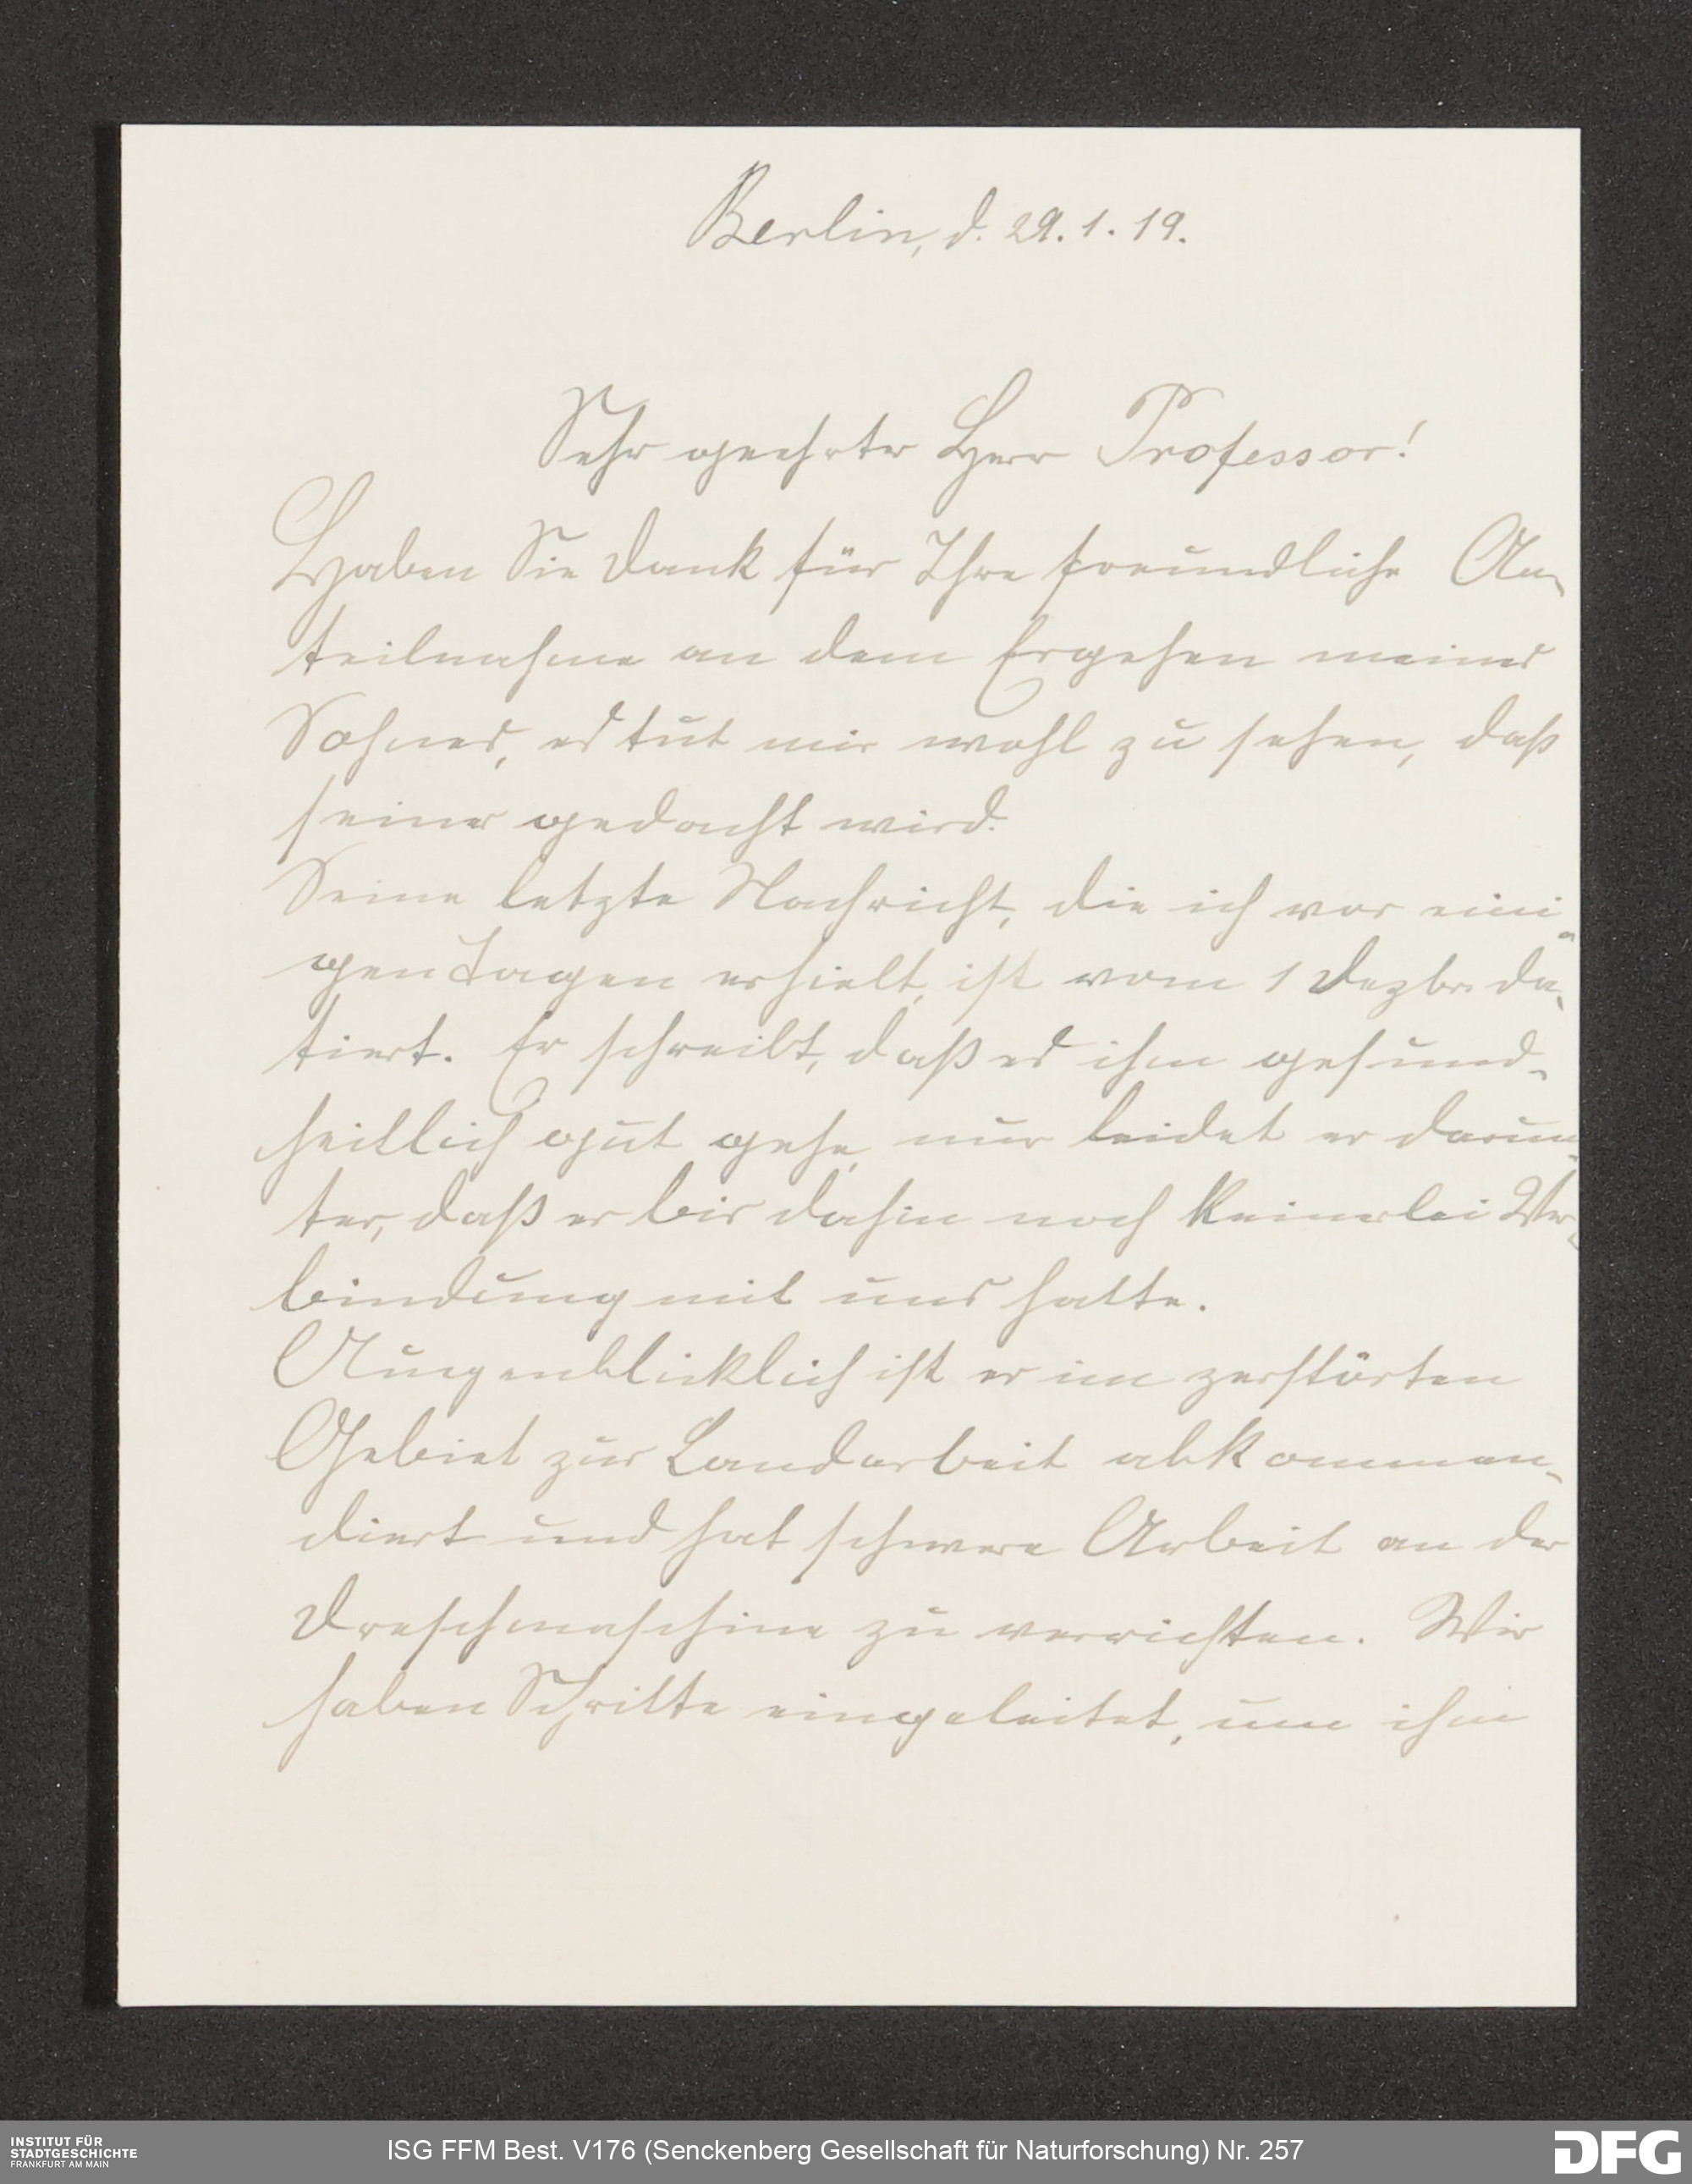 Berlin, d. 29.1.19.
Sehr geehrter Herr Professor!
Haben Sie Dank für Ihre freundliche An-
teilnahme an dem Ergehen meines
Sohnes, es tut mir wohl zu sehen, daß
seiner gedacht wird.
Seine letzte Nachricht, die ich vor eini-
gen Tagen erhielt, ist vom 1 Dezbr. da-
tiert. Er schreibt, daß es ihm gesund-
heitlich gut gehe, nur leidet er darun-
ter, daß er bis dahin noch keinerlei Ver-
bindung mit uns hatte.
Augenblicklich ist er im zerstörten
Gebiet zur Landarbeit abkomman-
diert und hat schwere Arbeit an der
Dreschmaschine zu verrichten. Wir
haben Schritte eingeleitet, um ihm
INSTITUT FÜR
STADTGESCHICHTE
FRANKFURT AM MAIN
ISG FFM Best. V176 (Senckenberg Gesellschaft für Naturforschung) Nr. 257
DFG